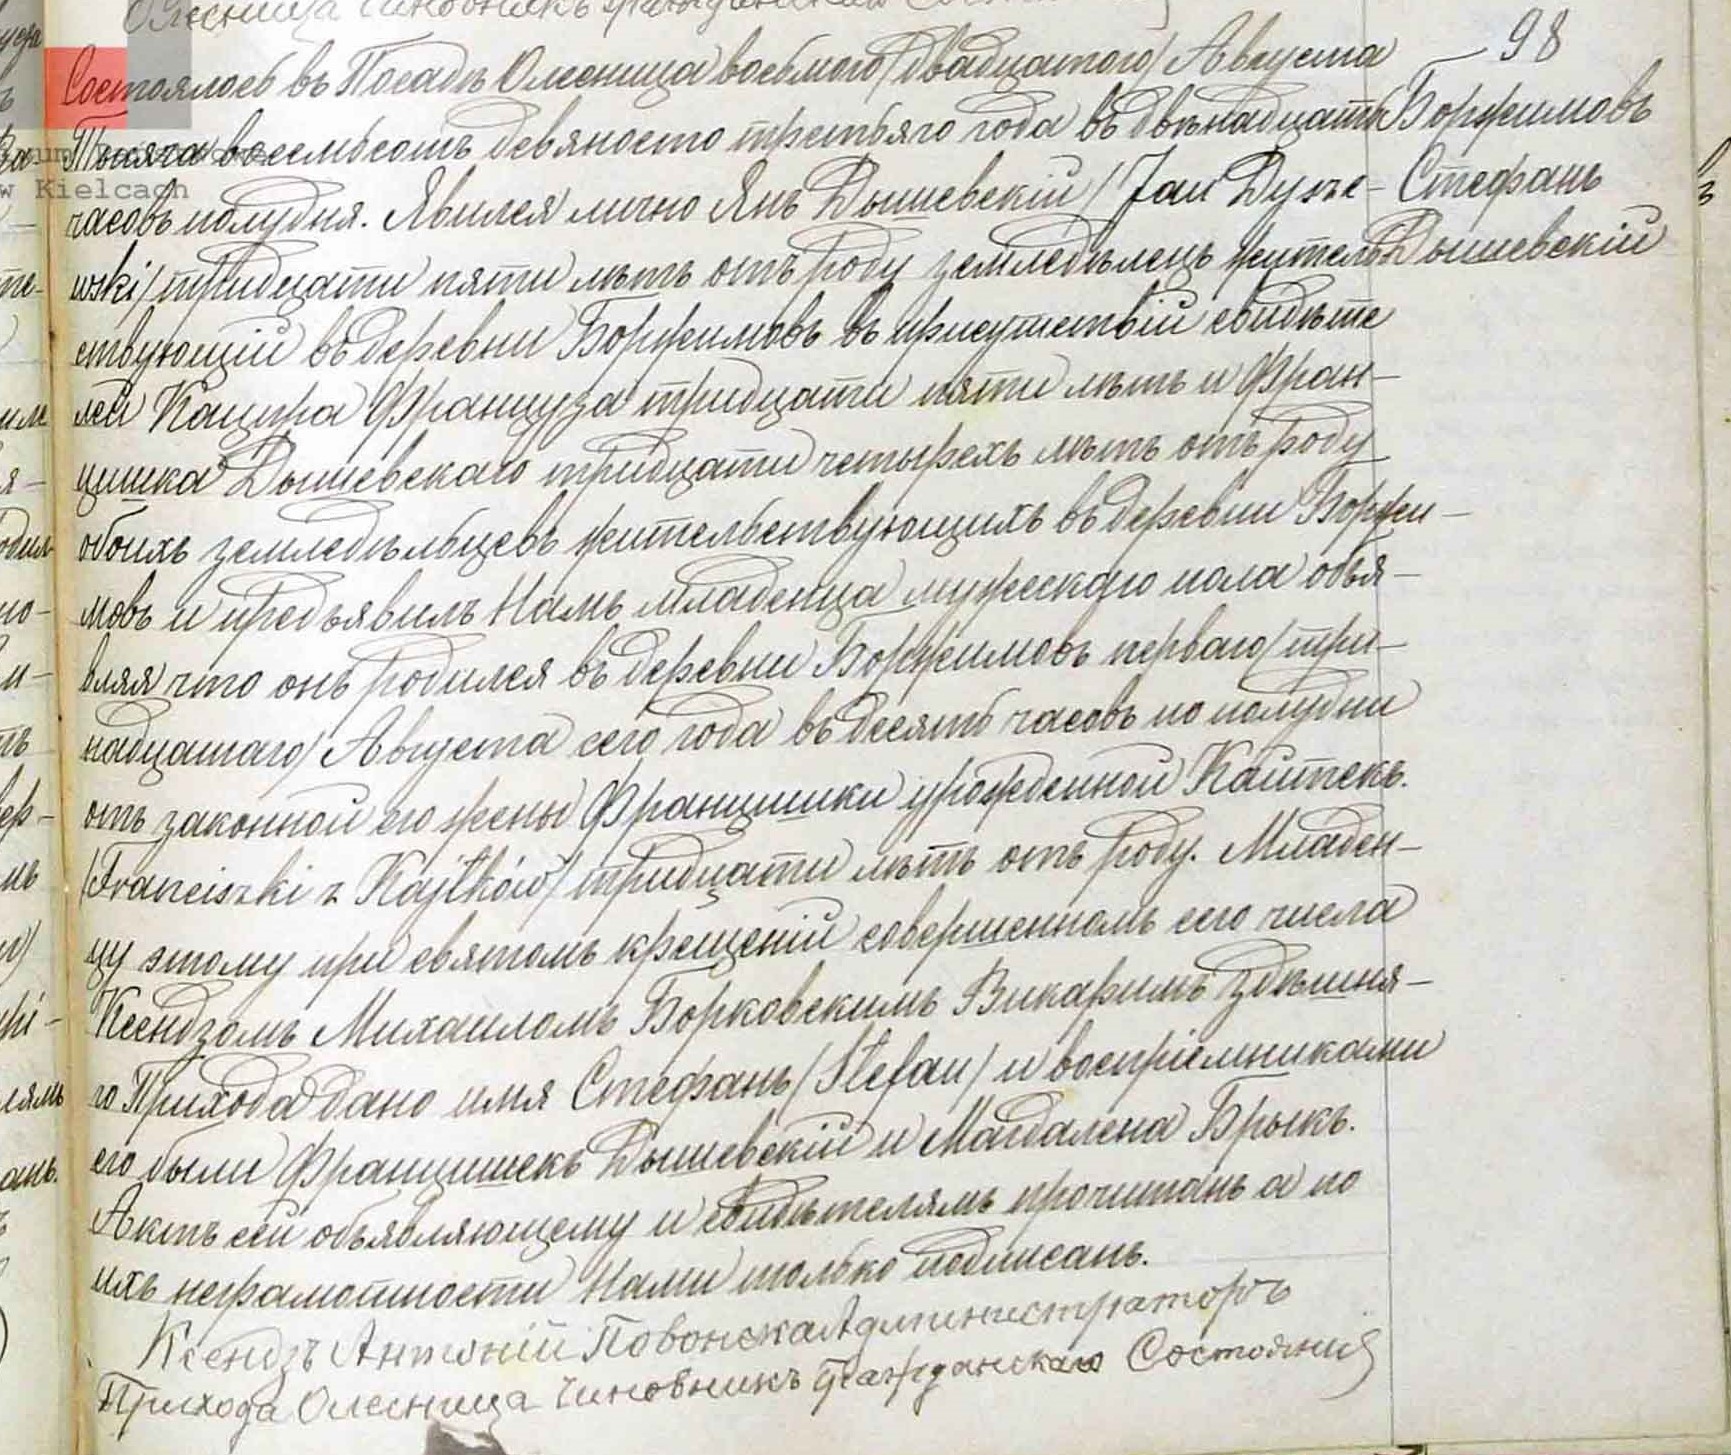 Олесница Чиновникъ
98
Боржимовъ
Стефанъ
Дышевскій
Состоялось въ Посадѣ Олесница восьмаго /двадцатого/ Августа
Тысяча восемьсотъ девяносто третьяго года въ двѣнадцать
часовъ полудня. Явился лично Янъ Дышевскій /Jan Dyże-
wski/ тридцати пяти лѣтъ отъ роду земледѣлецъ житель
ствующій въ деревни Боржимовъ въ присутствіи свидѣте
лей Кацпра Француза тридцати пяти лѣтъ и Фран-
цишка Дышевскаго тридцати четырехъ лѣтъ отъ роду
обоихъ земледѣльцевъ жительствующихъ въ деревни Боржи-
мовъ и предъявилъ Намъ младенца мужескаго пола объя-
вляя что онъ родился въ деревни Боржимовъ перваго /три-
надцатаго/ Августа сего года въ десять часовъ по полудни
отъ законной его жены Францишки урожденной Кайтекъ.
/Franciszki z Kajtków/ тридцати лѣтъ отъ роду. Младен-
цу этому при святомъ крещеніи совершенномъ сего числа
Ксендзомъ Михаиломъ Борковскимъ Викаримъ здѣшня-
го Прихода дано имя Стефанъ /Stefan/ и воспріемниками
его были Францишекъ Дышевскій и Магдалена Брыкъ.
Актъ сей объявляющему и свидѣтелямъ прочитанъ а по
ихъ неграмотности Нами только подписанъ.
Ксендзъ Антоній Администраторъ
Прихода Олесница Чиновникъ Гражданскаго Состоянія
w Kielcach